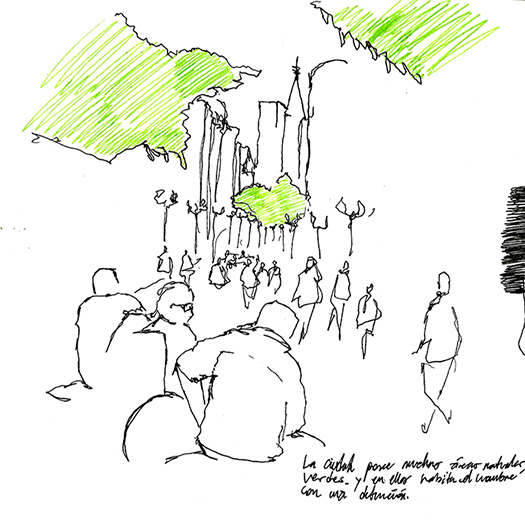 La ciudad posee muchas áreas naturales
verdes y en ellas habita el hombre
con una detención.